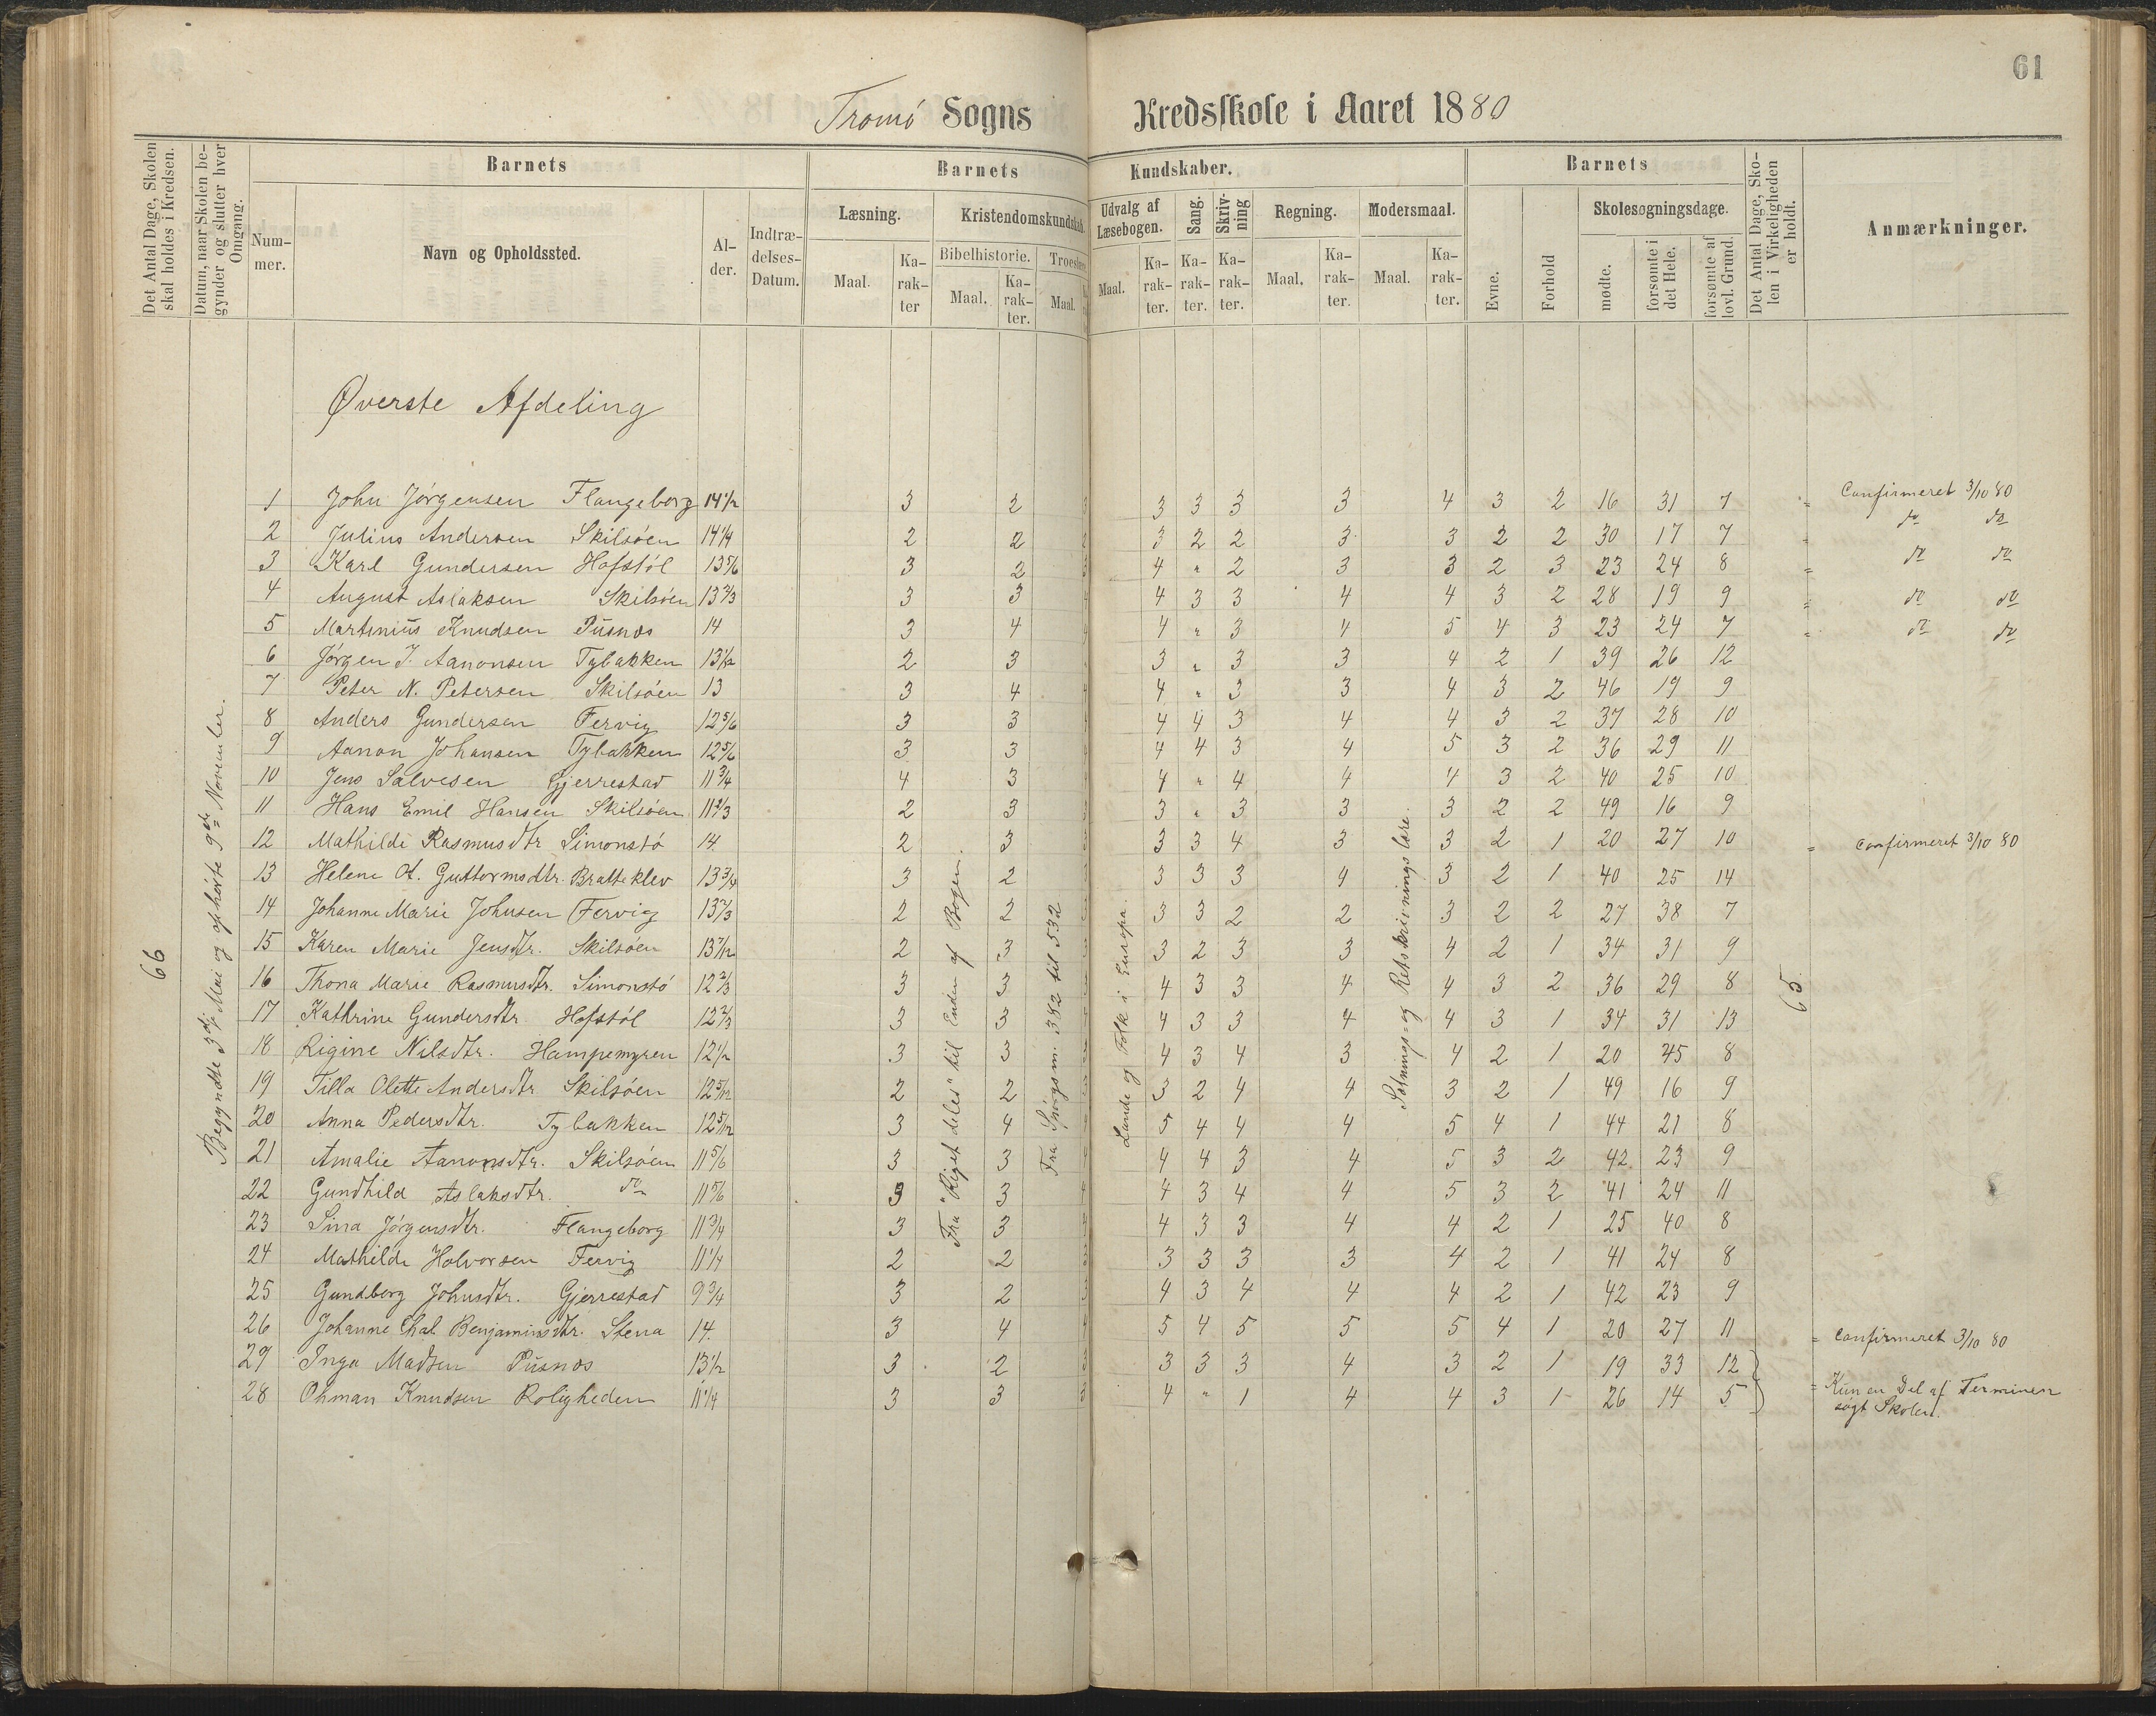 61
Tromö Sogns Kredsskole i Aaret 1880
Det Antal Dage, Skolen skal holdes i Kredsen.
Datum, naar Skolen begynder og slutter hver Omgang.
Barnets
Nummer.
Navn og Opholdssted.
Alder.
Indtrædelses-Datum.
Barnets Kundskaber.
Læsning.
Maal.
Karakter
Kristendomskundskab.
Bibelhistorie.
Maal.
Karakter.
Maal.
Udvalg af Læsebogen.
Maal.
Karakter.
Sang.
Karakter.
Skrivning
Karakter.
Regning.
Maal.
Karakter.
Modersmaal.
Maal.
Karakter.
Barnets
Evne.
Forhold
Skolesøgningsdage.
mødte.
forsømte i det Hele.
forsømte af lovl. Grund.
Det Antal Dage, Skolen i Virkeligheden er holdt.
Anmærkninger.
Øverste Afdeling
66
Begyndte 3die Mai og ophörte 9de November.
Fra "Riget deles" til Enden af Bogen.
Fra Spørgsm. 382 til 532
Lande og Folk i Europa.
Sætnings= og Retskrivningslære.
65
1 John Jörgensen Flangeborg 14 1/2 3 2 3 3 3 3 3 4 3 2 16 31 7 = Confirmeret 3/10 80
2 Julius Andersen Skilsöen 14 1/4 2 2 2 3 2 2 3 3 2 2 30 17 7 = do do
3 Karl Gundersen Hofstöl 13 5/6 3 2 4 " 2 3 3 2 3 23 24 8 = do do
4 August Aslaksen Skilsöen 13 2/3 3 3 4 4 3 3 4 4 3 2 28 19 9 = do do
5 Martinius Knudsen Pusnæs 14 3 4 4 4 " 3 4 5 4 3 23 24 7 = do do
6 Jörgen J. Aanonsen Tybakken 13 1/12 2 3 3 " 3 3 4 2 1 39 26 12
7 Peter N. Petersen Skilsöen 13 3 4 4 4 " 3 3 4 3 2 46 19 9
8 Anders Gundersen Fervig 12 5/6 3 3 4 4 3 4 4 3 2 37 28 10
9 Aanon Johansen Tybakken 12 5/6 3 3 4 4 3 4 5 3 2 36 29 11
10 Jens Salvesen Gjerrestad 11 3/4 4 3 4 " 4 4 4 3 2 40 25 10
11 Hans Emil Hansen Skilsöen 11 2/3 2 3 3 3 " 3 3 3 2 2 49 16 9
12 Mathilde Rasmusdtr Simonstö 14 2 3 3 3 3 4 3 3 2 1 20 27 10 = Confirmeret 3/10 80
13 Helene O. Guttormsdtr. Bratteklev 13 3/4 3 2 3 3 3 4 3 2 1 40 25 14
14 Johanne Marie Johnsen Fervig 13 2/3 2 2 3 3 2 2 3 2 2 27 38 7
15 Karen Marie Jensdtr. Skilsöen 13 7/12 2 3 3 3 2 3 3 4 2 1 34 31 9
16 Thona Marie Rasmusdtr. Simonstö 12 2/3 3 3 4 3 3 4 4 3 2 36 29 8
17 Kathrine Gundersdtr. Hofstöl 12 2/3 3 3 4 3 3 4 4 3 1 34 31 13
18 Rigine Nilsdtr. Hampemyren 12 1/2 3 3 4 3 4 3 4 2 1 20 45 8
19 Tilla Olette Andersdtr Skilsöen 12 5/12 2 2 3 3 2 4 4 3 2 1 49 16 9
20 Anna Pedersdtr. Tybakken 12 5/12 3 4 5 4 4 4 5 4 1 44 21 8
21 Amalie Aanonsdtr. Skilsöen 11 5/6 3 3 4 4 3 4 5 3 2 42 23 9
22 Gundhild Aslaksdtr. do 11 5/6 3 3 4 4 3 4 4 5 3 2 41 24 11
23 Sina Jörgensdtr. Flangeborg 11 3/4 3 3 4 4 3 3 4 4 2 1 25 40 8
24 Mathilde Halvorsen Fervig 11 1/4 2 2 3 3 3 3 3 4 2 1 41 24 8
25 Gundborg Johnsdtr. Gjerrestad 9 3/4 3 2 3 4 3 4 4 4 2 1 42 23 9
26 Johanne Chal. Benjaminsdtr. Stena 14. 3 4 5 4 5 5 5 4 1 20 27 11 = Confirmeret 3/10 80
27 Inga Madsen Pusnæs 13 1/2 3 2 3 3 3 3 4 3 2 1 19 33 12
28 Ohman Knudsen Roligheden 11 1/4 3 3 3 4 " 1 4 4 3 1 26 14 5 = Kun en Del af Terminen
søgt Skolen.